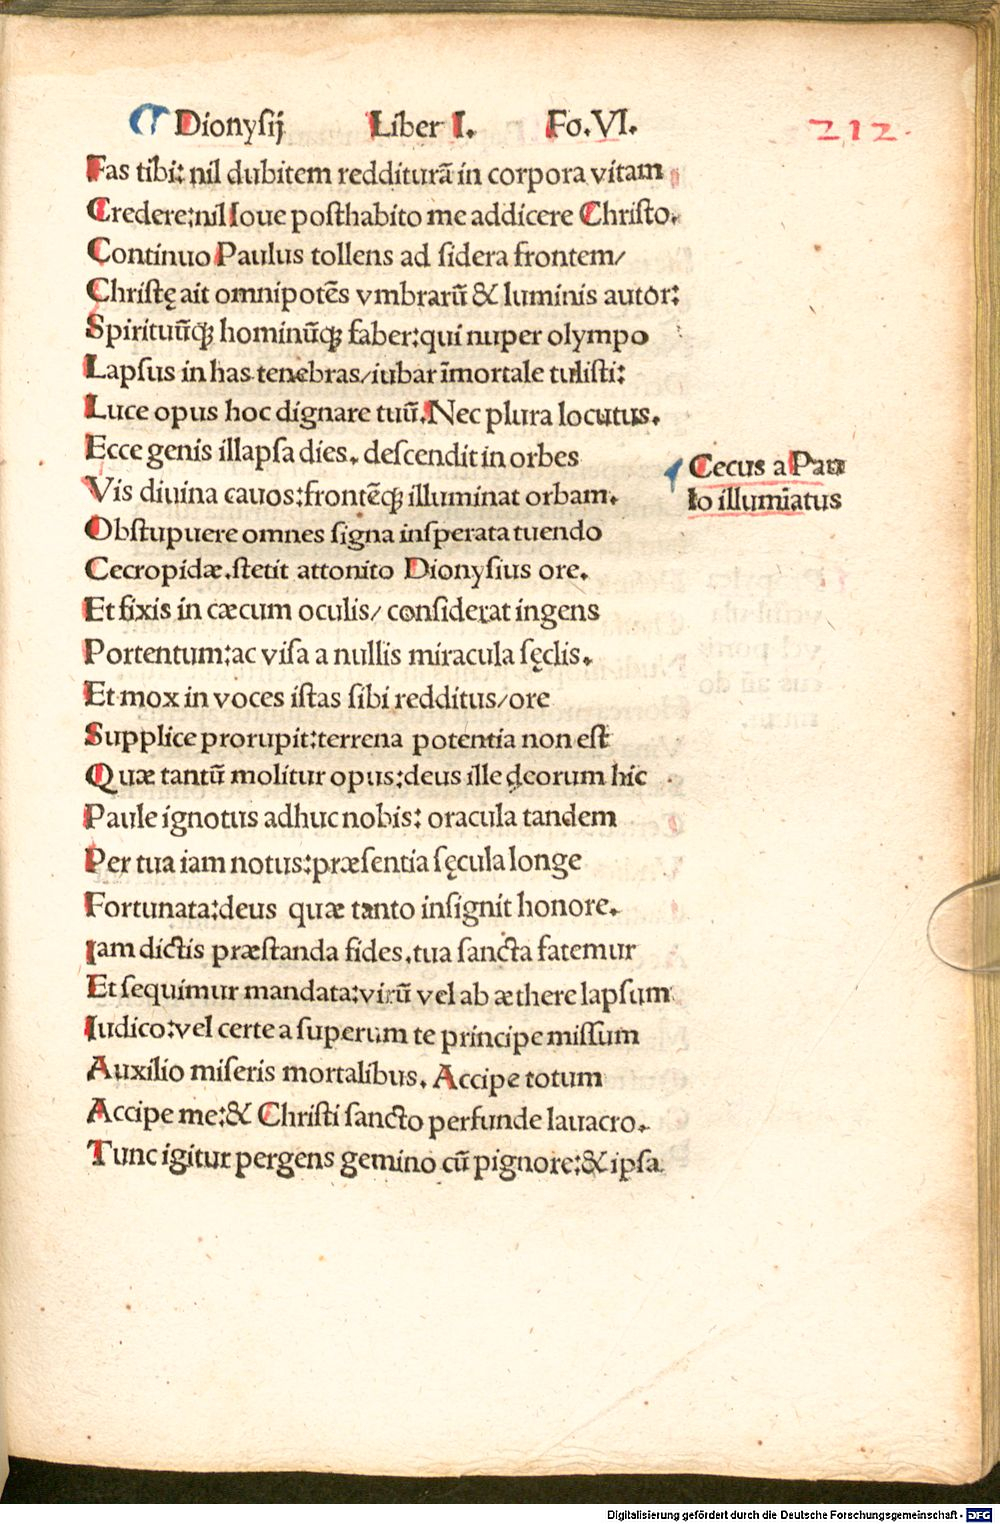 Dionysij Liber I. Fo. VI. 212.
Fas tibi: nil dubitem redditurã in corpora vitam
Credere: nil Ioue posthabito me addicere Christo.
Continuo Paulus tollens ad sidera frontem/
Christę ait omnipotẽs vmbrarũ & luminis autor:
Spirituũqꝫ hominũqꝫ faber: qui nuper olympo
Lapsus in has tenebras/ iubar ĩmortale tulisti:
Luce opus hoc dignare tuũ. Nec plura locutus.
Ecce genis illapsa dies. descendit in orbes
Vis diuina cauos: frontẽqꝫ illuminat orbam.
Cecus a Pau
lo illumiãtus
Obstupuere omnes signa insperata tuendo
Cecropidæ. stetit attonito Dionysius ore.
Et fixis in cæcum oculis/ considerat ingens
Portentum: ac visa a nullis miracula sęclis.
Et mox in voces istas sibi redditus/ ore
Supplice prorupit: terrena potentia non est
Quæ tantũ molitur opus: deus ille deorum hic
Paule ignotus adhuc nobis: oracula tandem
Per tua iam notus: præsentia sęcula longe
Fortunata: deus quæ tanto insignit honore.
Iam dictis præstanda fides. tua sancta fatemur
Et sequimur mandata: virũ vel ab æthere lapsum
Iudico: vel certe a superum te principe missum
Auxilio miseris mortalibus. Accipe totum
Accipe me: & Christi sancto perfunde lauacro.
Tunc igitur pergens gemino cũ pignore: & ipsa
Digitalisierung gefördert durch die Deutsche Forschungsgemeinschaft - DFG